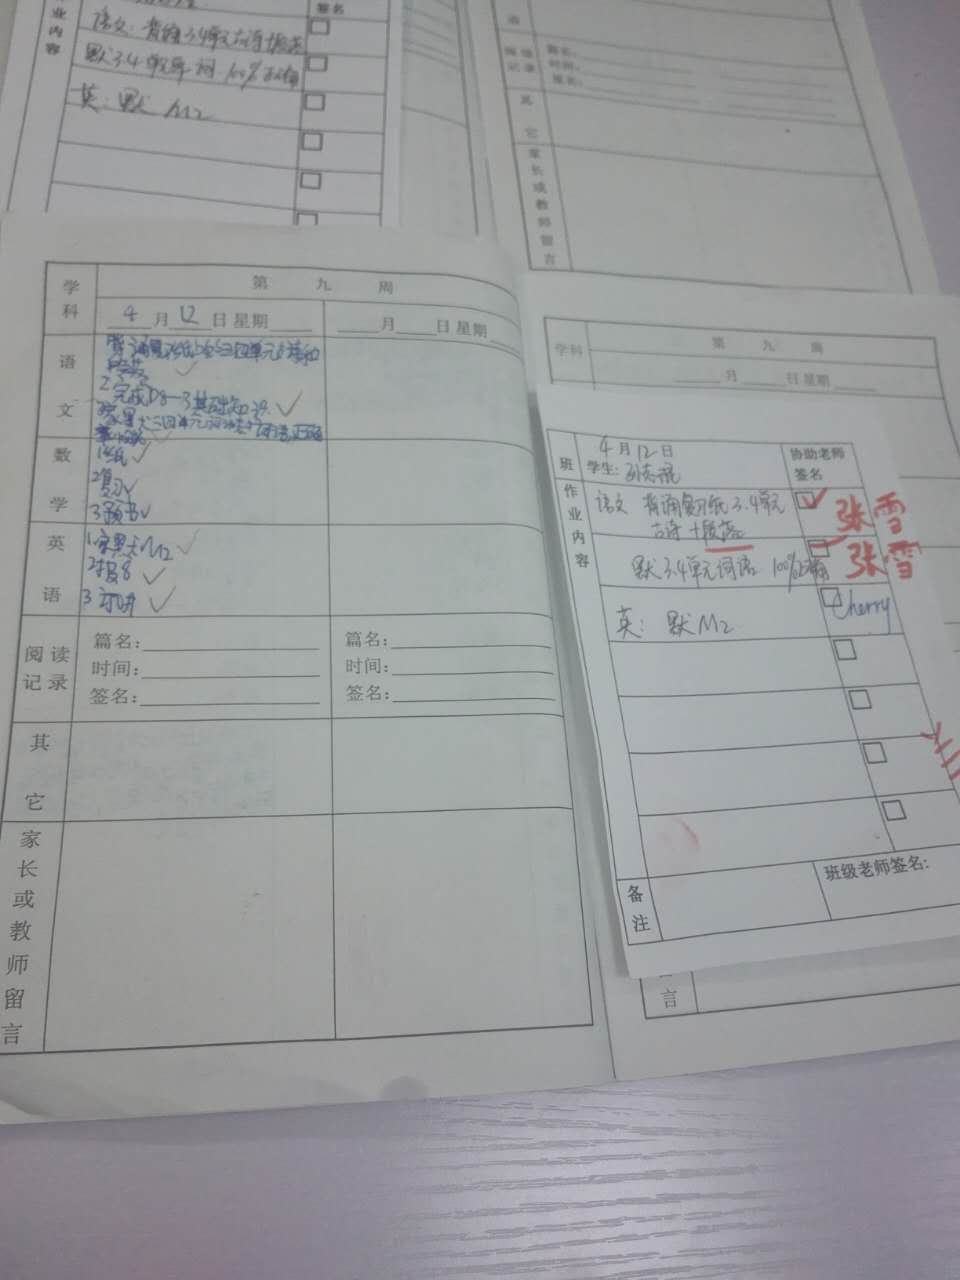 业内容
签名
语文：背诵3.4单元古诗+段落
默3.4单元词语 100%正确
英：默M2
阅读记录
篇名：
时间：
签名：
其它
家长或教师留言
学科
第 九 周
4月12日 星期
月 日 星期
语文
背诵复习纸上
2.完成D8-3基础知识
数学
1.纸
2复习
3预书
英语
1.家默大M2
2报8
3订讲
阅读记录
篇名：
时间：
签名：
篇名：
时间：
签名：
其它
家长或教师留言
学科
第 九 周
月 日 星期
班
4月12日
学生：
协助老师签名
作业内容
语文 背诵复习纸3.4单元
古诗+段落
张雪
默3.4单元词语 100%正确
张雪
英：默M2
Cherry
备注
班级老师签名：
言